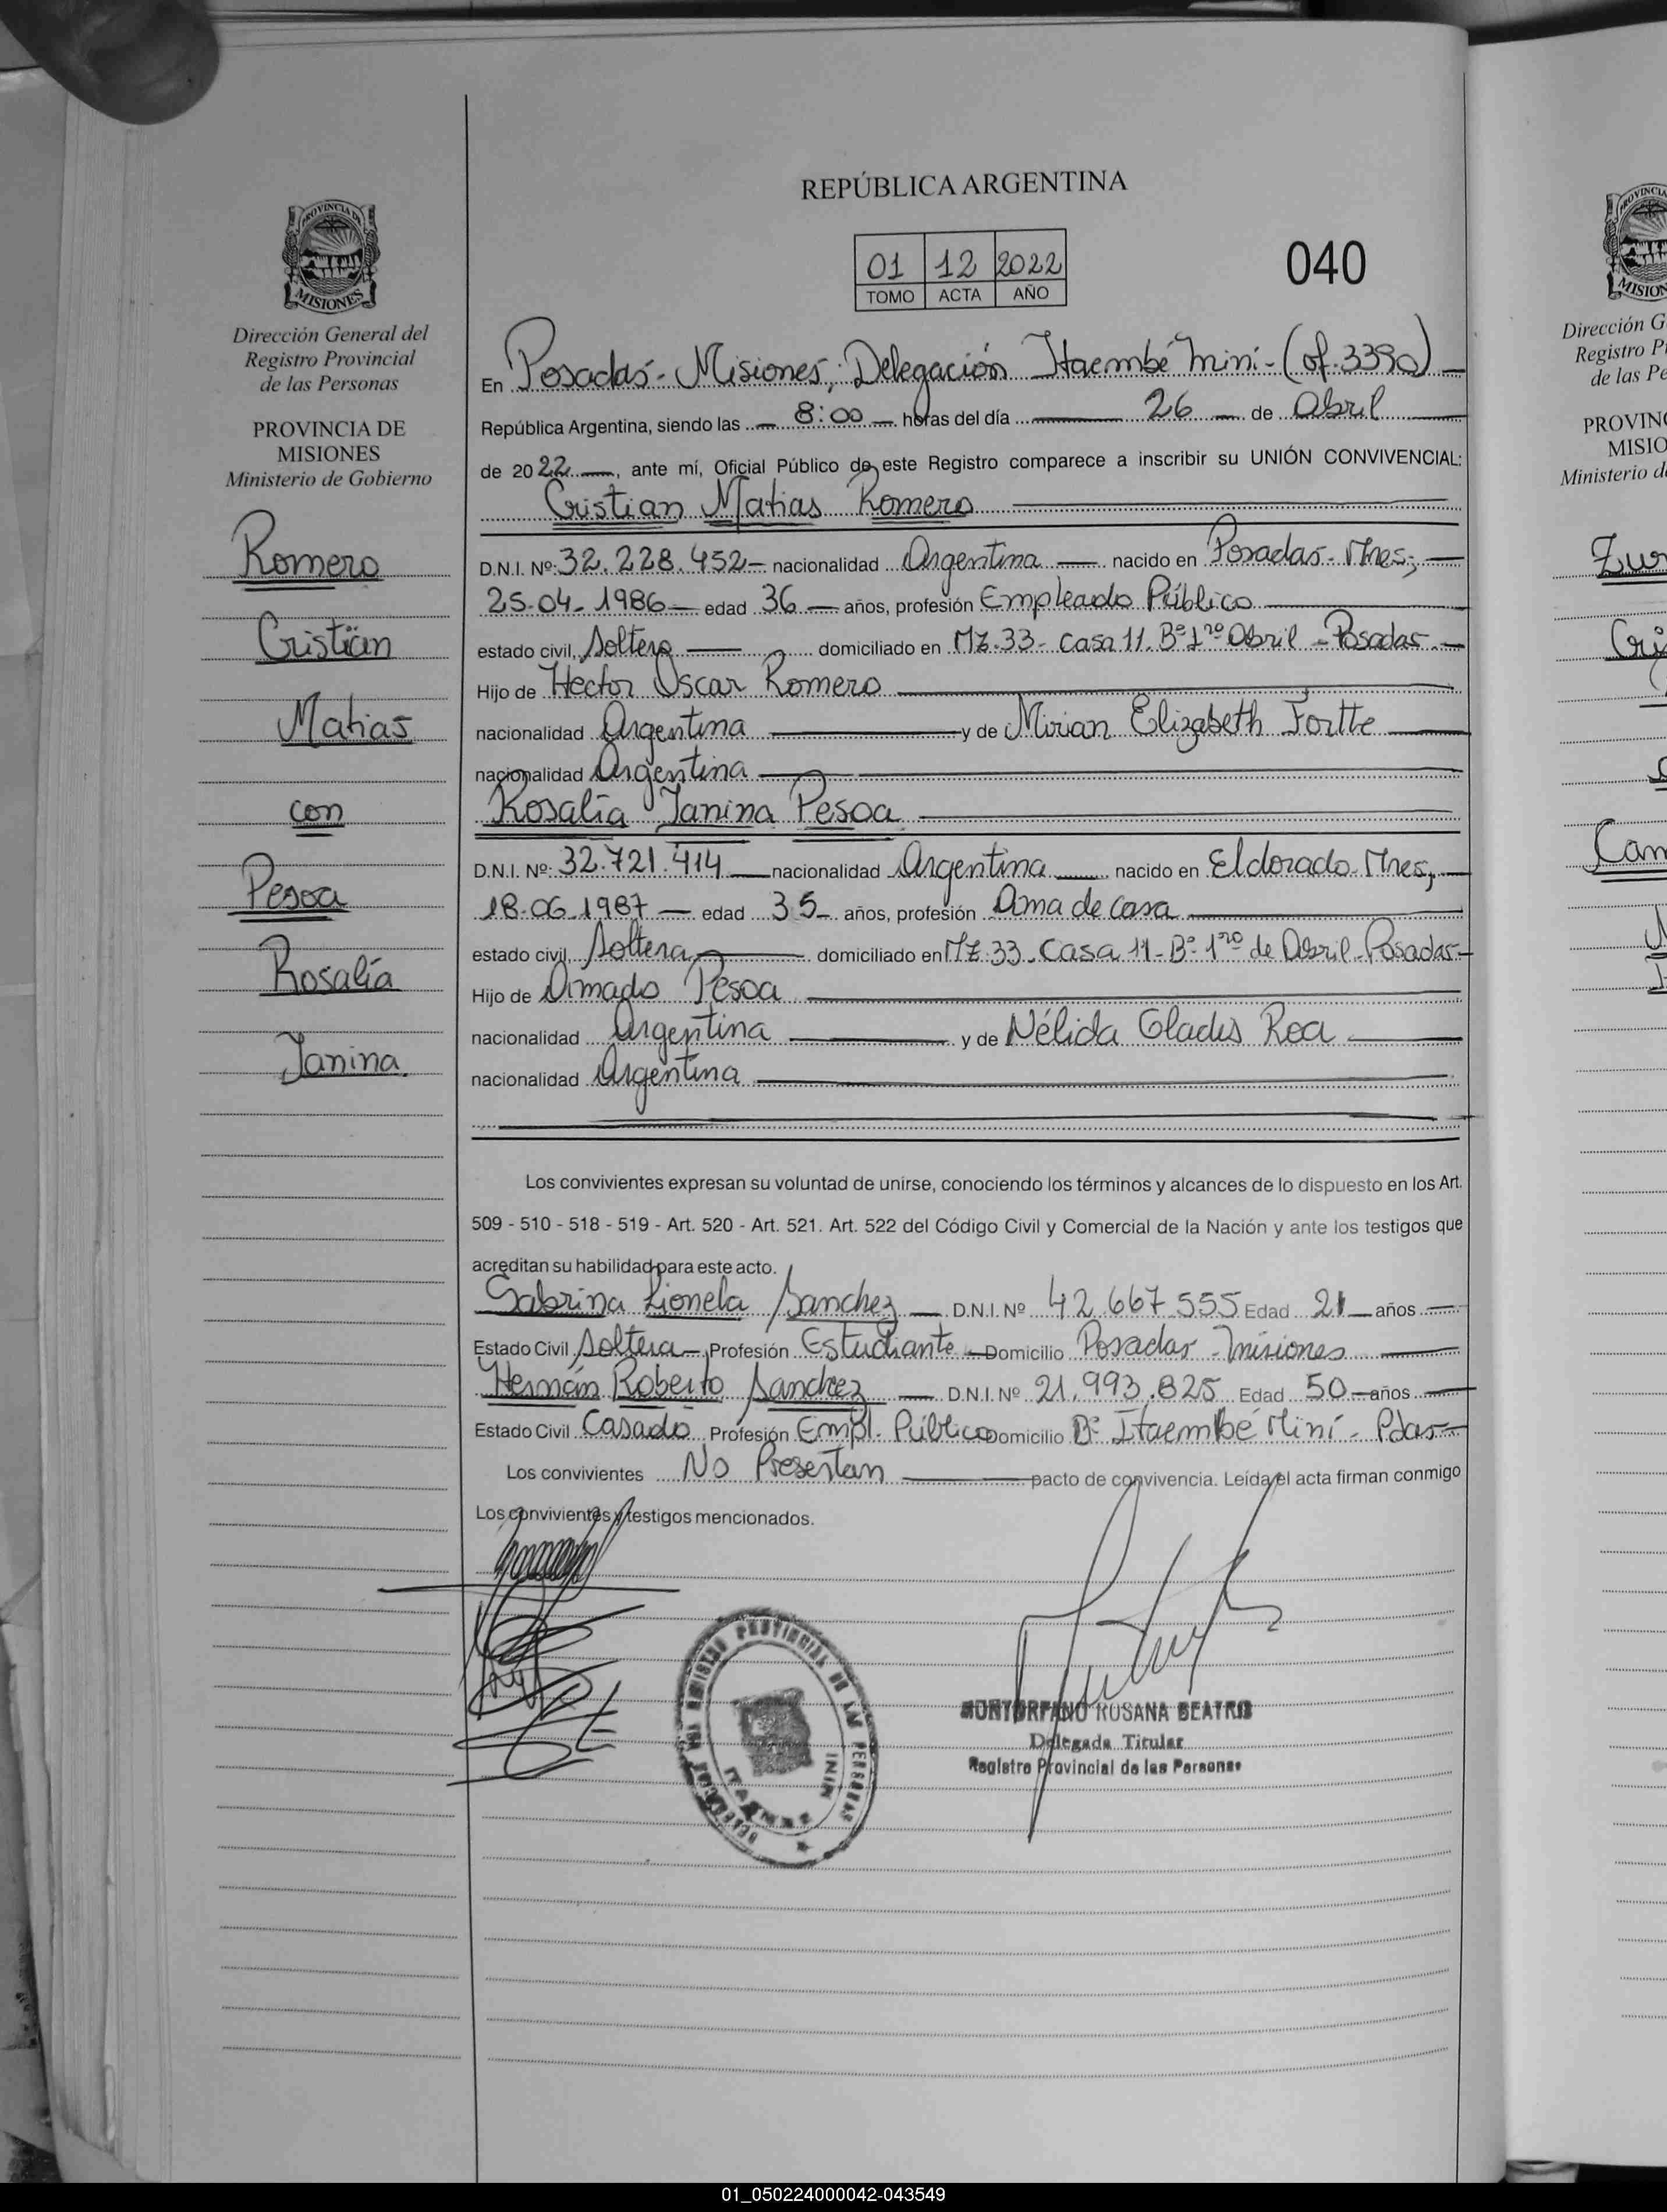 REPÚBLICA ARGENTINA
01 12 2022
TOMO ACTA AÑO
040
PROVINCIA DE
MISIONES
Dirección General del
Registro Provincial
de las Personas
PROVINCIA DE
MISIONES
Ministerio de Gobierno
Romero
Cristian
Matias
con
Pesoa
Rosalía
Janina.
En Posadas- Misiones; Delegación Itaembé Miní- (of. 3390)
República Argentina, siendo las 8:00 horas del día 26 de Abril
de 2022, ante mí, Oficial Público de este Registro comparece a inscribir su UNIÓN CONVIVENCIAL:
Cristian Matias Romero
D.N.I. Nº: 32.228.452- nacionalidad Argentina nacido en Posadas- Mnes;
25-04-1986 edad 36 años, profesión Empleado Público
estado civil, Soltero domiciliado en Mz. 33- casa 11. Bº 1ro Abril - Posadas.
Hijo de Hector Oscar Romero
nacionalidad Argentina y de Mirian Elizabeth Fortte
nacionalidad Argentina
Rosalía Janina Pesoa
D.N.I. Nº: 32.721.414 nacionalidad Argentina nacido en Eldorado- Mnes,
18-06-1987 edad 35 años, profesión Ama de casa
estado civil, Soltera domiciliado en Mz. 33- Casa 11- Bº- 1ro de Abril- Posadas-
Hijo de Amado Pesoa
nacionalidad Argentina y de Nélida Gladis Roa
nacionalidad Argentina
Los convivientes expresan su voluntad de unirse, conociendo los términos y alcances de lo dispuesto en los Art.
509 - 510 - 518 - 519 - Art. 520 - Art. 521. Art. 522 del Código Civil y Comercial de la Nación y ante los testigos que
acreditan su habilidad para este acto.
Sabrina Lionela Sanchez D.N.I. Nº 42.667.555 Edad 21 años
Estado Civil Soltera Profesión Estudiante Domicilio Posadas - Misiones
Hernán Roberto Sanchez D.N.I. Nº 21.993.825 Edad 50 años
Estado Civil Casado Profesión Empl. Público Domicilio Bº Itaembé Miní - Pdas
Los convivientes No Presentan pacto de convivencia. Leída el acta firman conmigo
Los convivientes y testigos mencionados.
MONTORFANO ROSANA BEATRIZ
Delegada Titular
Registro Provincial de las Personas
01_050224000042-043549